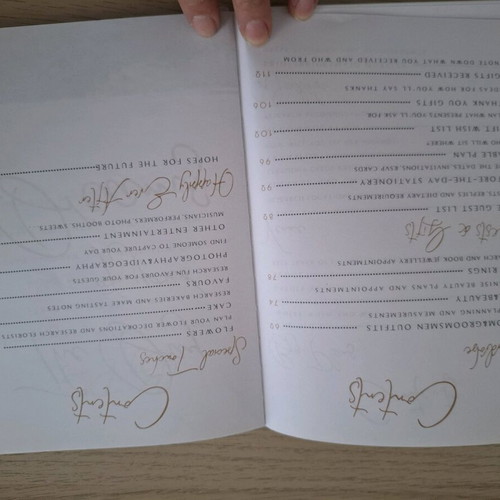 Contents
OM&GROOMSMEN OUTFITS
PLANNING AND MEASUREMENTS
BEAUTY 74
NISE BEAUTY PLANS AND APPOINTMENTS
RINGS 78
ARCH AND BOOK JEWELLERY APPOINTMENTS
& Gifts
GUEST LIST
REPLIES AND DIETARY REQUIREMENTS
ORE-THE-DAY STATIONERY 90
THE DATES, INVITATIONS, RSVP CARDS
BLE PLAN 96
HO WILL SIT WHERE?
WISH LIST 102
LAN WHAT PRESENTS YOU'LL ASK FOR
THANK YOU GIFTS 106
IDEAS FOR HOW YOU'LL SAY THANKS
GIFTS RECEIVED 110
NOTE DOWN WHAT YOU RECEIVED AND WHO FROM
Contents
Special Touches
FLOWERS
PLAN YOUR FLOWER DECORATIONS AND RESEARCH FLORISTS
CAKE
RESEARCH BAKERIES AND MAKE TASTING NOTES
FAVOURS
RESEARCH FUN FAVOURS FOR YOUR GUESTS
PHOTOGRAPHY&VIDEOGRAPHY
FIND SOMEONE TO CAPTURE YOUR DAY
OTHER ENTERTAINMENT
MUSICIANS, PERFORMERS, PHOTO BOOTHS, SWEETS
Happily Ever After
HOPES FOR THE FUTURE